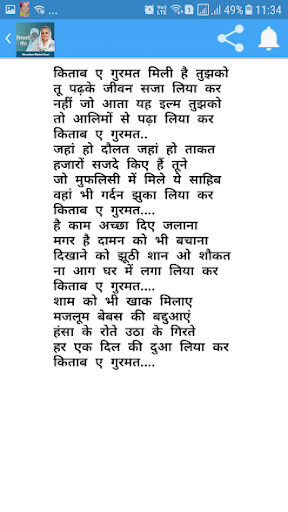 49% 11:34
किताब ए गुरमत मिली है तुझको
तू पढ़के जीवन सजा लिया कर
नहीं जो आता यह इल्म तुझको
तो आलिमों से पढ़ा लिया कर
किताब ए गुरमत..
जहां हो दौलत जहां हो ताकत
हजारों सजदे किए हैं तूने
जो मुफलिसी में मिले ये साहिब
वहां भी गर्दन झुका लिया कर
किताब ए गुरमत....
है काम अच्छा दिए जलाना
मगर है दामन को भी बचाना
दिखाने को झूठी शान ओ शौकत
ना आग घर में लगा लिया कर
किताब ए गुरमत....
शाम को भी खाक मिलाए
मजलूम बेबस की बद्दुआएं
हंसा के रोते उठा के गिरते
हर एक दिल की दुआ लिया कर
किताब ए गुरमत....